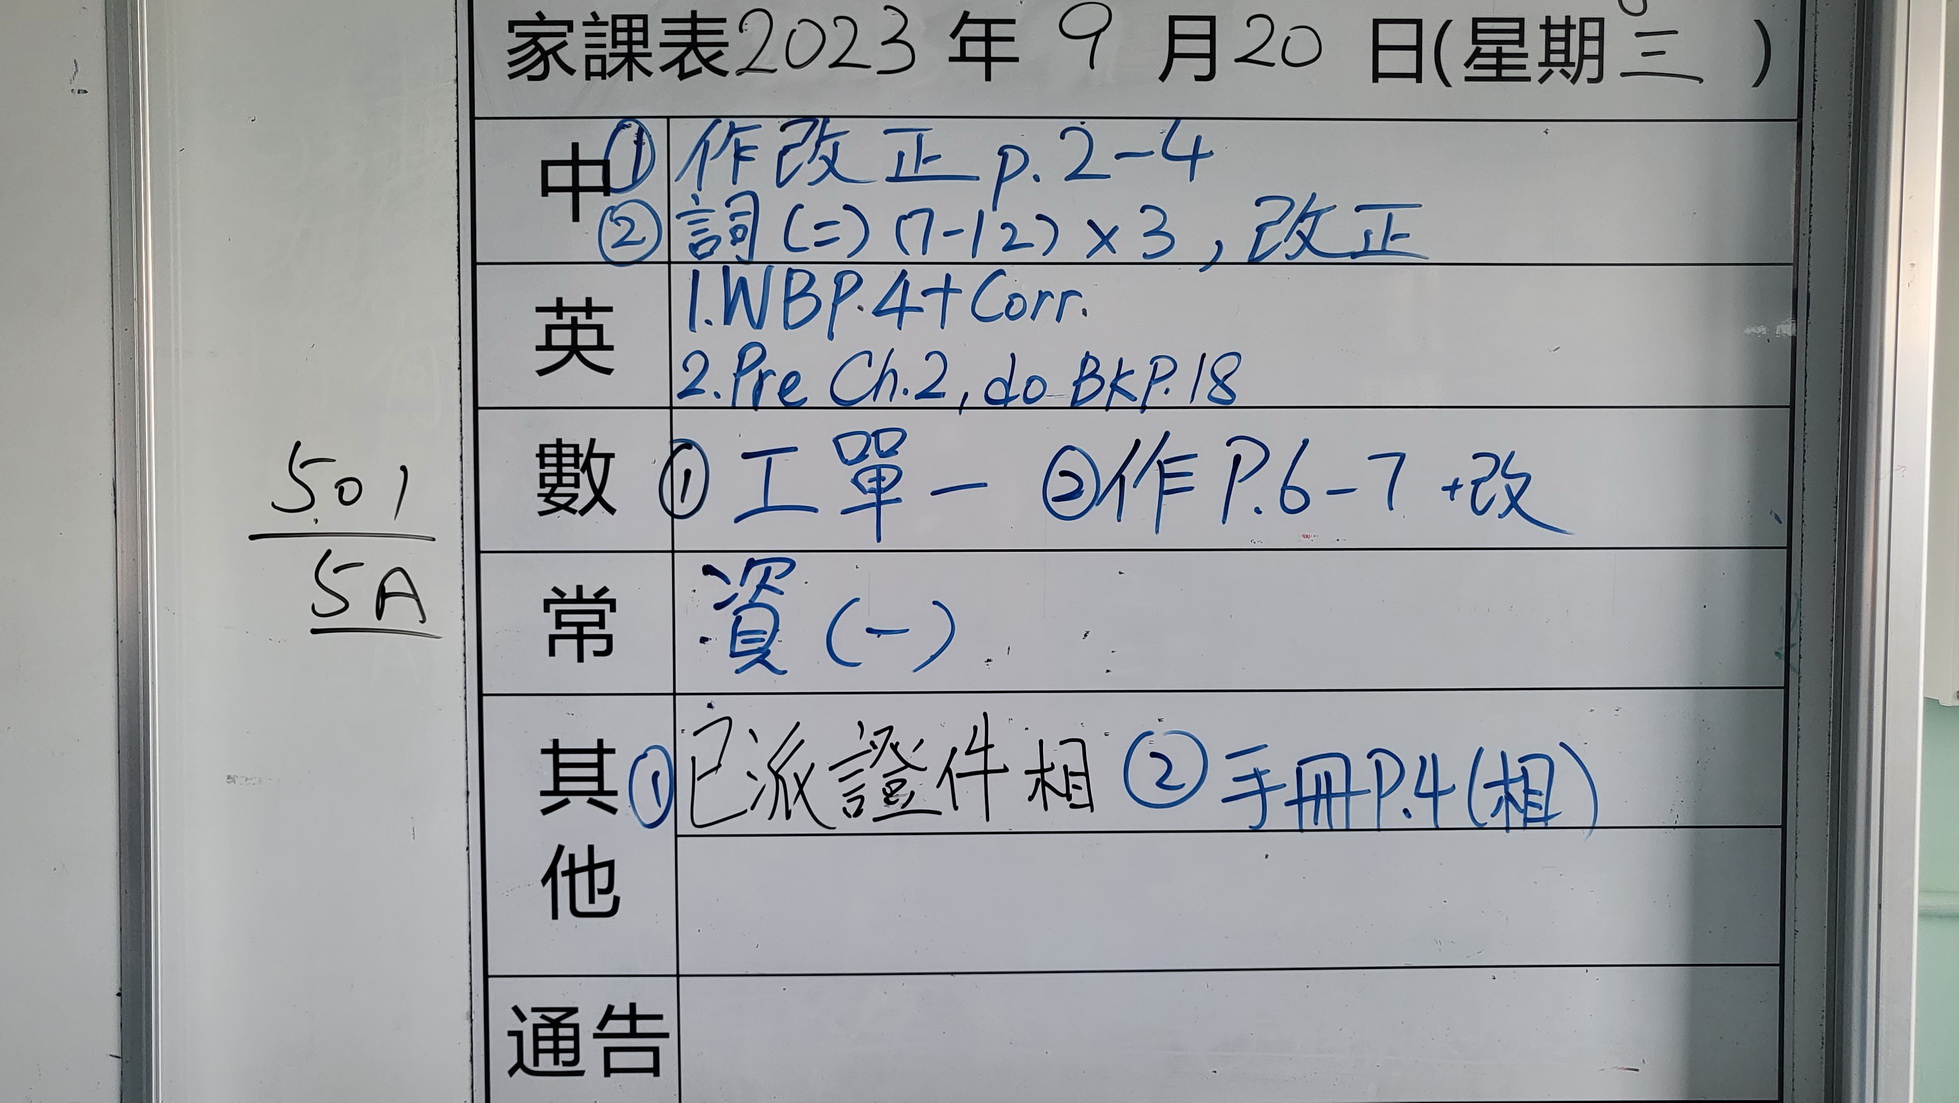 家課表2023年9月20日(星期三)
中
①作改正p.2-4
②詞(二)(7-12)×3,改正
英
1.WBP.4+Corr.
2.Pre Ch.2, do BKP.18
數
①工單一 ②作P.6-7+改
501
5A
常
資(一)
其他
①已派證件相 ②手冊P.4(相)
通告